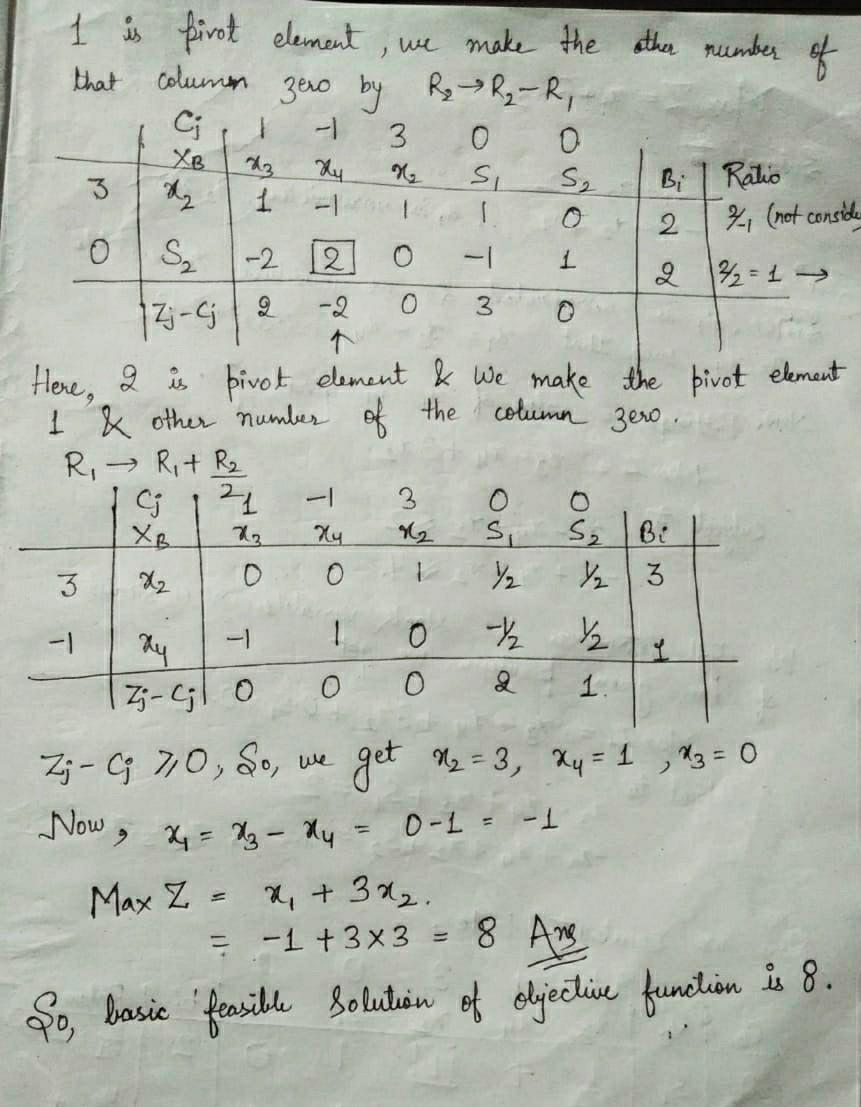 1 is pivot element, we make the other number of
that column zero by R₂→R₂-R₁
Cj 1 -1 3 0 0
XB x₃ x₄ x₂ S₁ S₂ Bi Ratio
3 x₂ 1 -1 1 1 0 2 2/-1 (not conside
0 S₂ -2 2 0 -1 1 2 2/2 = 1 →
Zj-Cj 2 -2 0 3 0
↑
Here, 2 is pivot element & We make the pivot element
1 & other number of the column zero.
R₁ → R₁ + R₂/2
Cj 1 -1 3 0 0
XB x₃ x₄ x₂ S₁ S₂ Bi
3 x₂ 0 0 1 1/2 1/2 3
-1 x₄ -1 1 0 -1/2 1/2 1
Zj-Cj 0 0 0 2 1.
Zj-Cj ≥0, So, we get x₂ = 3, x₄ = 1, x₃ = 0
Now, x₁ = x₃ - x₄ = 0-1 = -1
Max Z = x₁ + 3x₂.
= -1 + 3×3 = 8 Ans
So, basic feasible solution of objective function is 8.